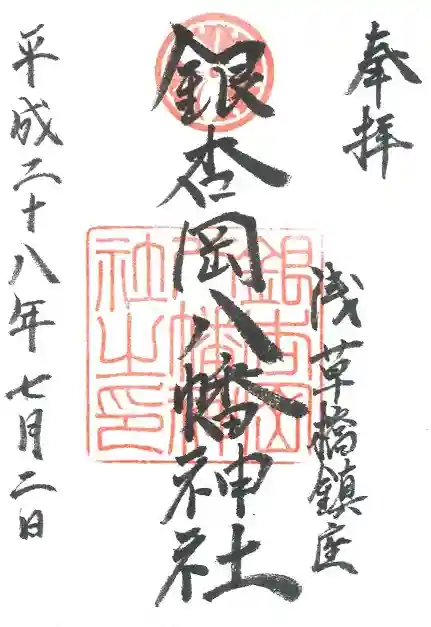 奉拝
浅草橋鎮座
銀杏岡八幡神社
平成二十八年七月二日
銀杏岡
八幡神
社之印